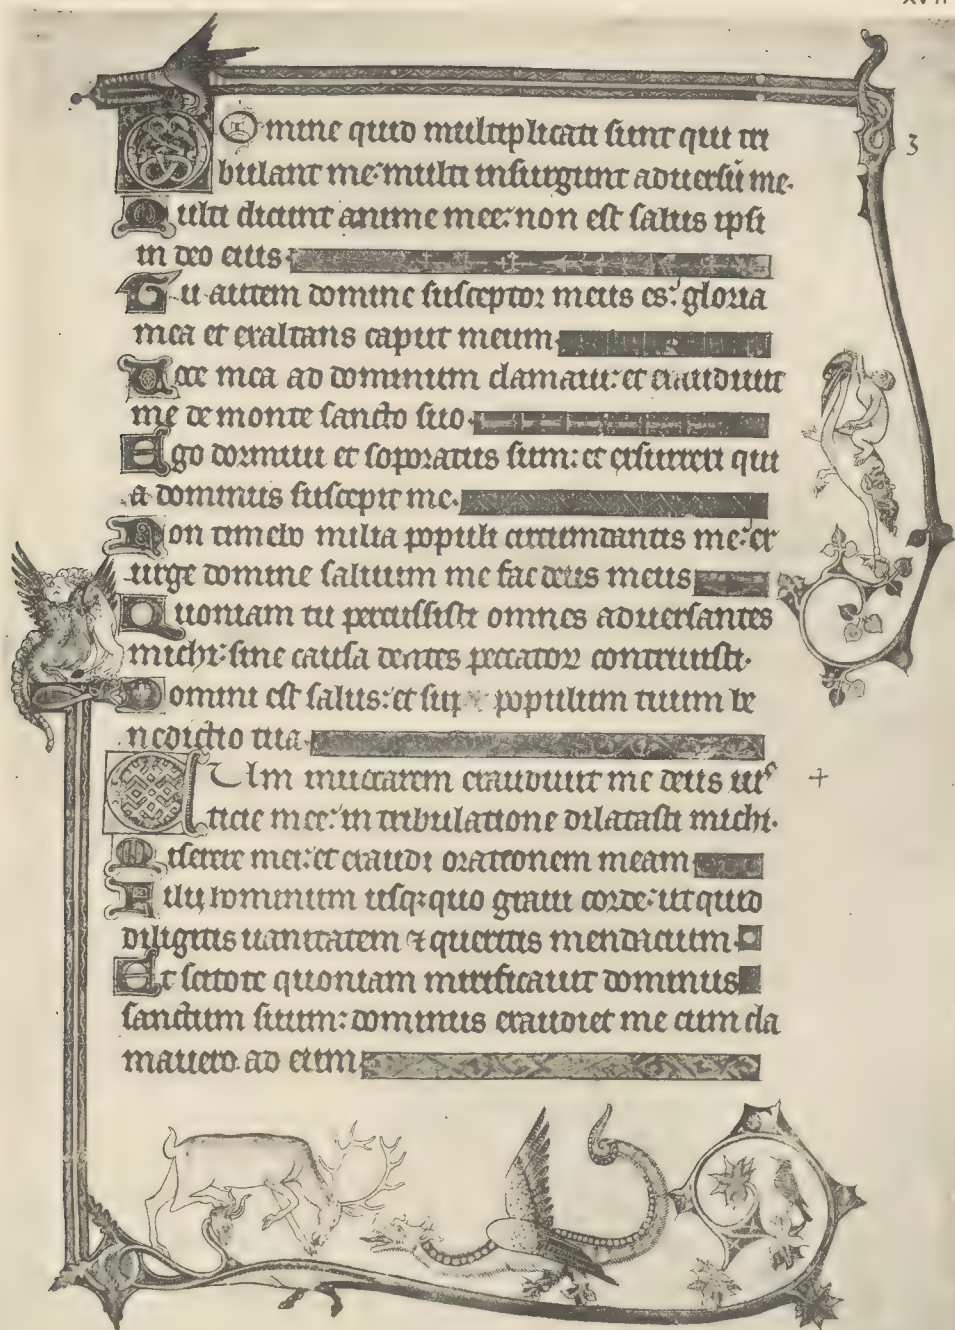 Domine quid multiplicati sunt qui tri
bulant me: multi insurgunt aduersū me.
Multi dicunt anime mee: non est salus ipsi
in deo eius:
Tu autem domine susceptor meus es: gloria
mea et exaltans caput meum.
Uoce mea ad dominum clamaui: et exaudiuit
me de monte sancto suo.
Ego dormiui et soporatus sum: et exsurrexi qui
a dominus suscepit me.
Non timebo milia populi circumdantis me: ex
urge domine saluum me fac deus meus
Quoniam tu percussisti omnes aduersantes
michi: sine causa dentes peccatoꝝ contriuisti.
Domini est salus: et sup populum tuum be
nedictio tua.
CUm inuocarem exaudiuit me deus ius
ticie mee: in tribulatione dilatasti michi.
Miserere mei: et exaudi orationem meam
Filij hominum usqꝫ quo graui corde: ut quid
diligitis uanitatem ⁊ queritis mendacium.
Et scitote quoniam mirificauit dominus
sanctum suum: dominus exaudiet me cum cla
mauero ad eum
3
4